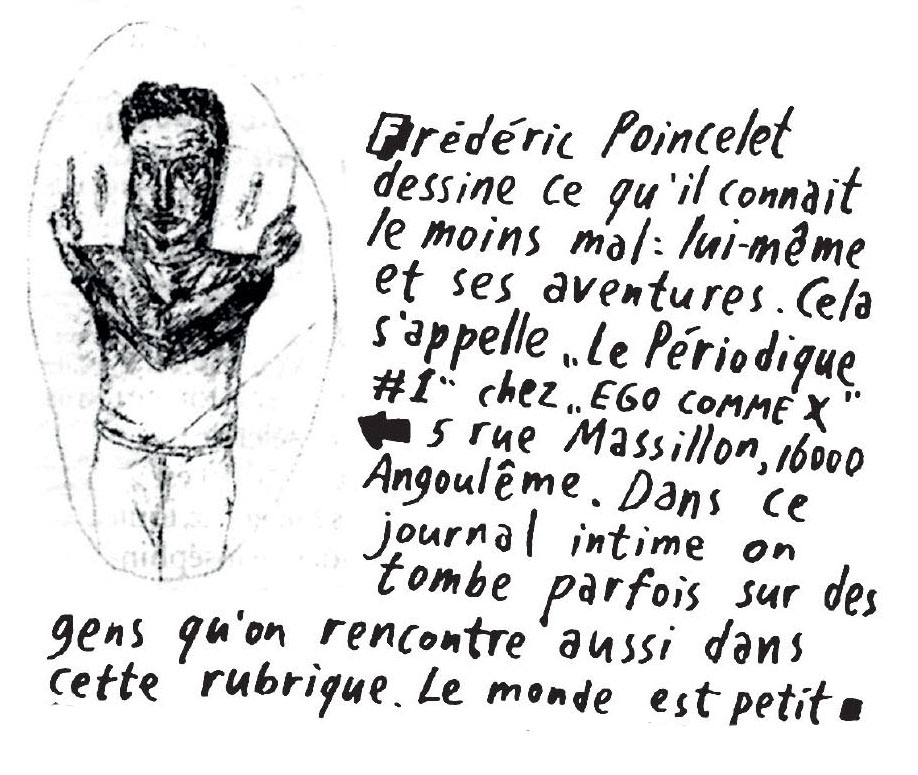 Frédéric Poincelet
dessine ce qu'il connait
le moins mal: lui-même
et ses aventures. Cela
s'appelle „Le Périodique
#1" chez „EGO COMME X"
5 rue Massillon, 16000
Angoulême. Dans ce
journal intime on
tombe parfois sur des
gens qu'on rencontre aussi dans
cette rubrique. Le monde est petit